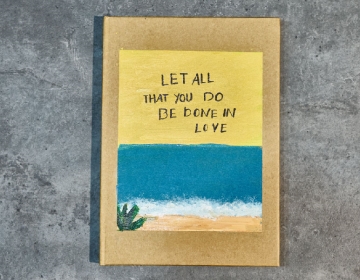 LET ALL
THAT YOU DO
BE DONE IN
LOVE